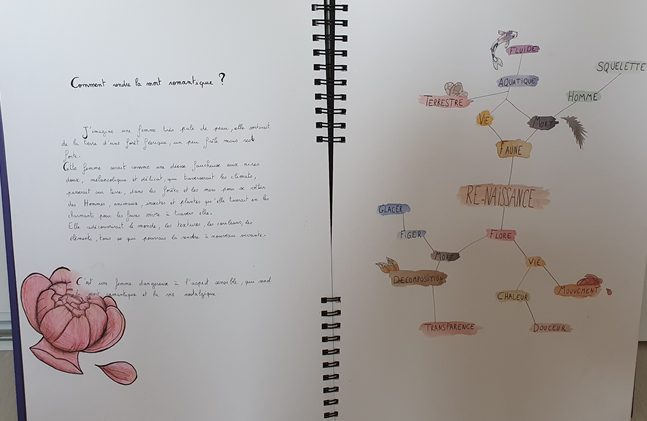 Comment rendre la mort romantique ?
J'imagine une femme très pâle de peau, elle sortirait
de la terre d'une forêt féerique, un peu frêle mais
forte.
Cette femme serait comme une déesse faucheuse aux
mélancolique et délicat, qui traverserait les climats,
sur terre, dans les forêts et les mers pour se vêtir
des Hommes, animaux, insectes et plantes qu'elle tuerait en les
charmants pour les faire vivre à travers elle.
Elle redécouvrirait le monde, les textures, les couleurs, les
éléments, tous ce que pourrais la rendre à nouveau vivante.
C'est une femme dangereuse à l'aspect sensible, qui rend
mort romantique et la vie nostalgique
FLUIDE
AQUATIQUE
TERRESTRE
SQUELETTE
HOMME
VIE
MORT
FAUNE
RE-NAISSANCE
GLACÉE
FIGER
FLORE
MORT
VIE
DÉCOMPOSITION
MOUVEMENT
CHALEUR
TRANSPARENCE
DOUCEUR